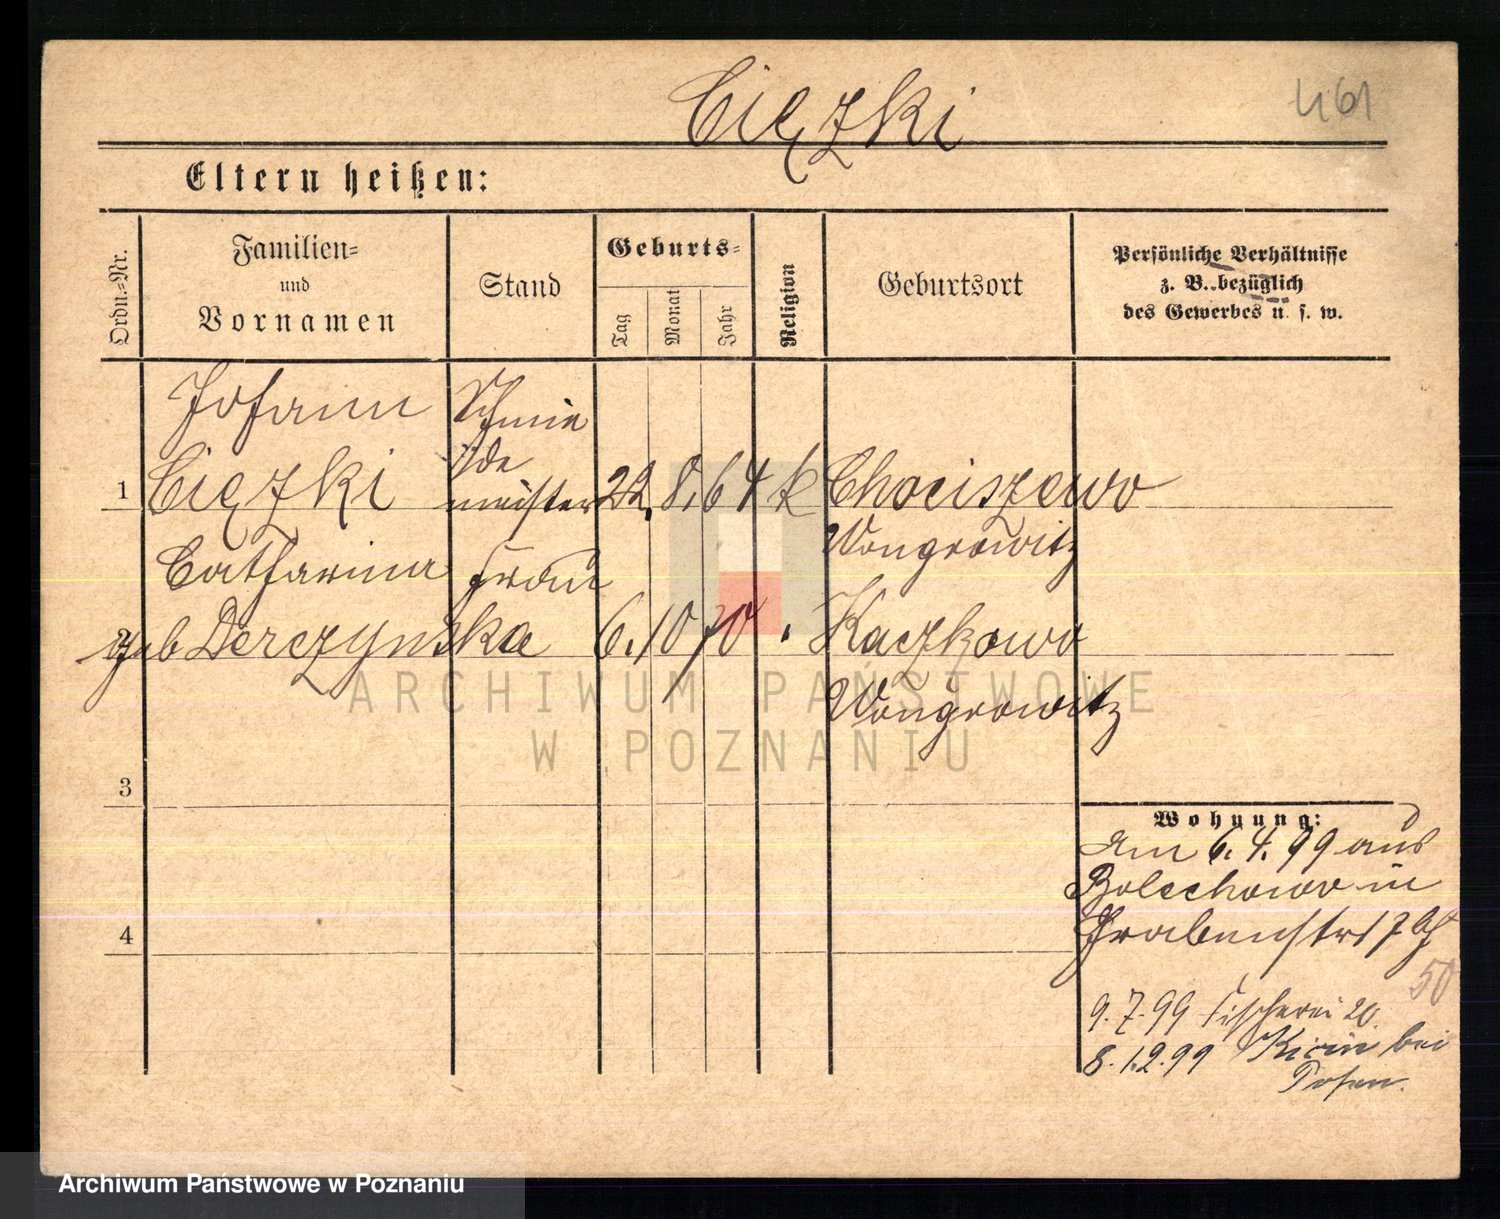 Ciężki
461
Eltern heißen:
Ordn.-Nr.
Familien-
und
Vornamen
Stand
Geburts-
Tag
Monat
Jahr
Religion
Geburtsort
Persönliche Verhältnisse
z. B. bezüglich
des Gewerbes u. s. w.
Johann Schmie
de
1 Ciężki meister 22. 8. 64 k Chociszewo
Wongrowitz
Catharina Frau
2 geb Derczynska 6. 10 70 " Kaczkowo
Wongrowitz
3
4
Wohnung:
Am 6. 4. 99 aus
Bolechowo in
Grabenstr 17
50
9. 7. 99 Fischerei 20
8. 12. 99 bei
Posen.
ARCHIWUM PAŃSTWOWE
W POZNANIU
Archiwum Państwowe w Poznaniu